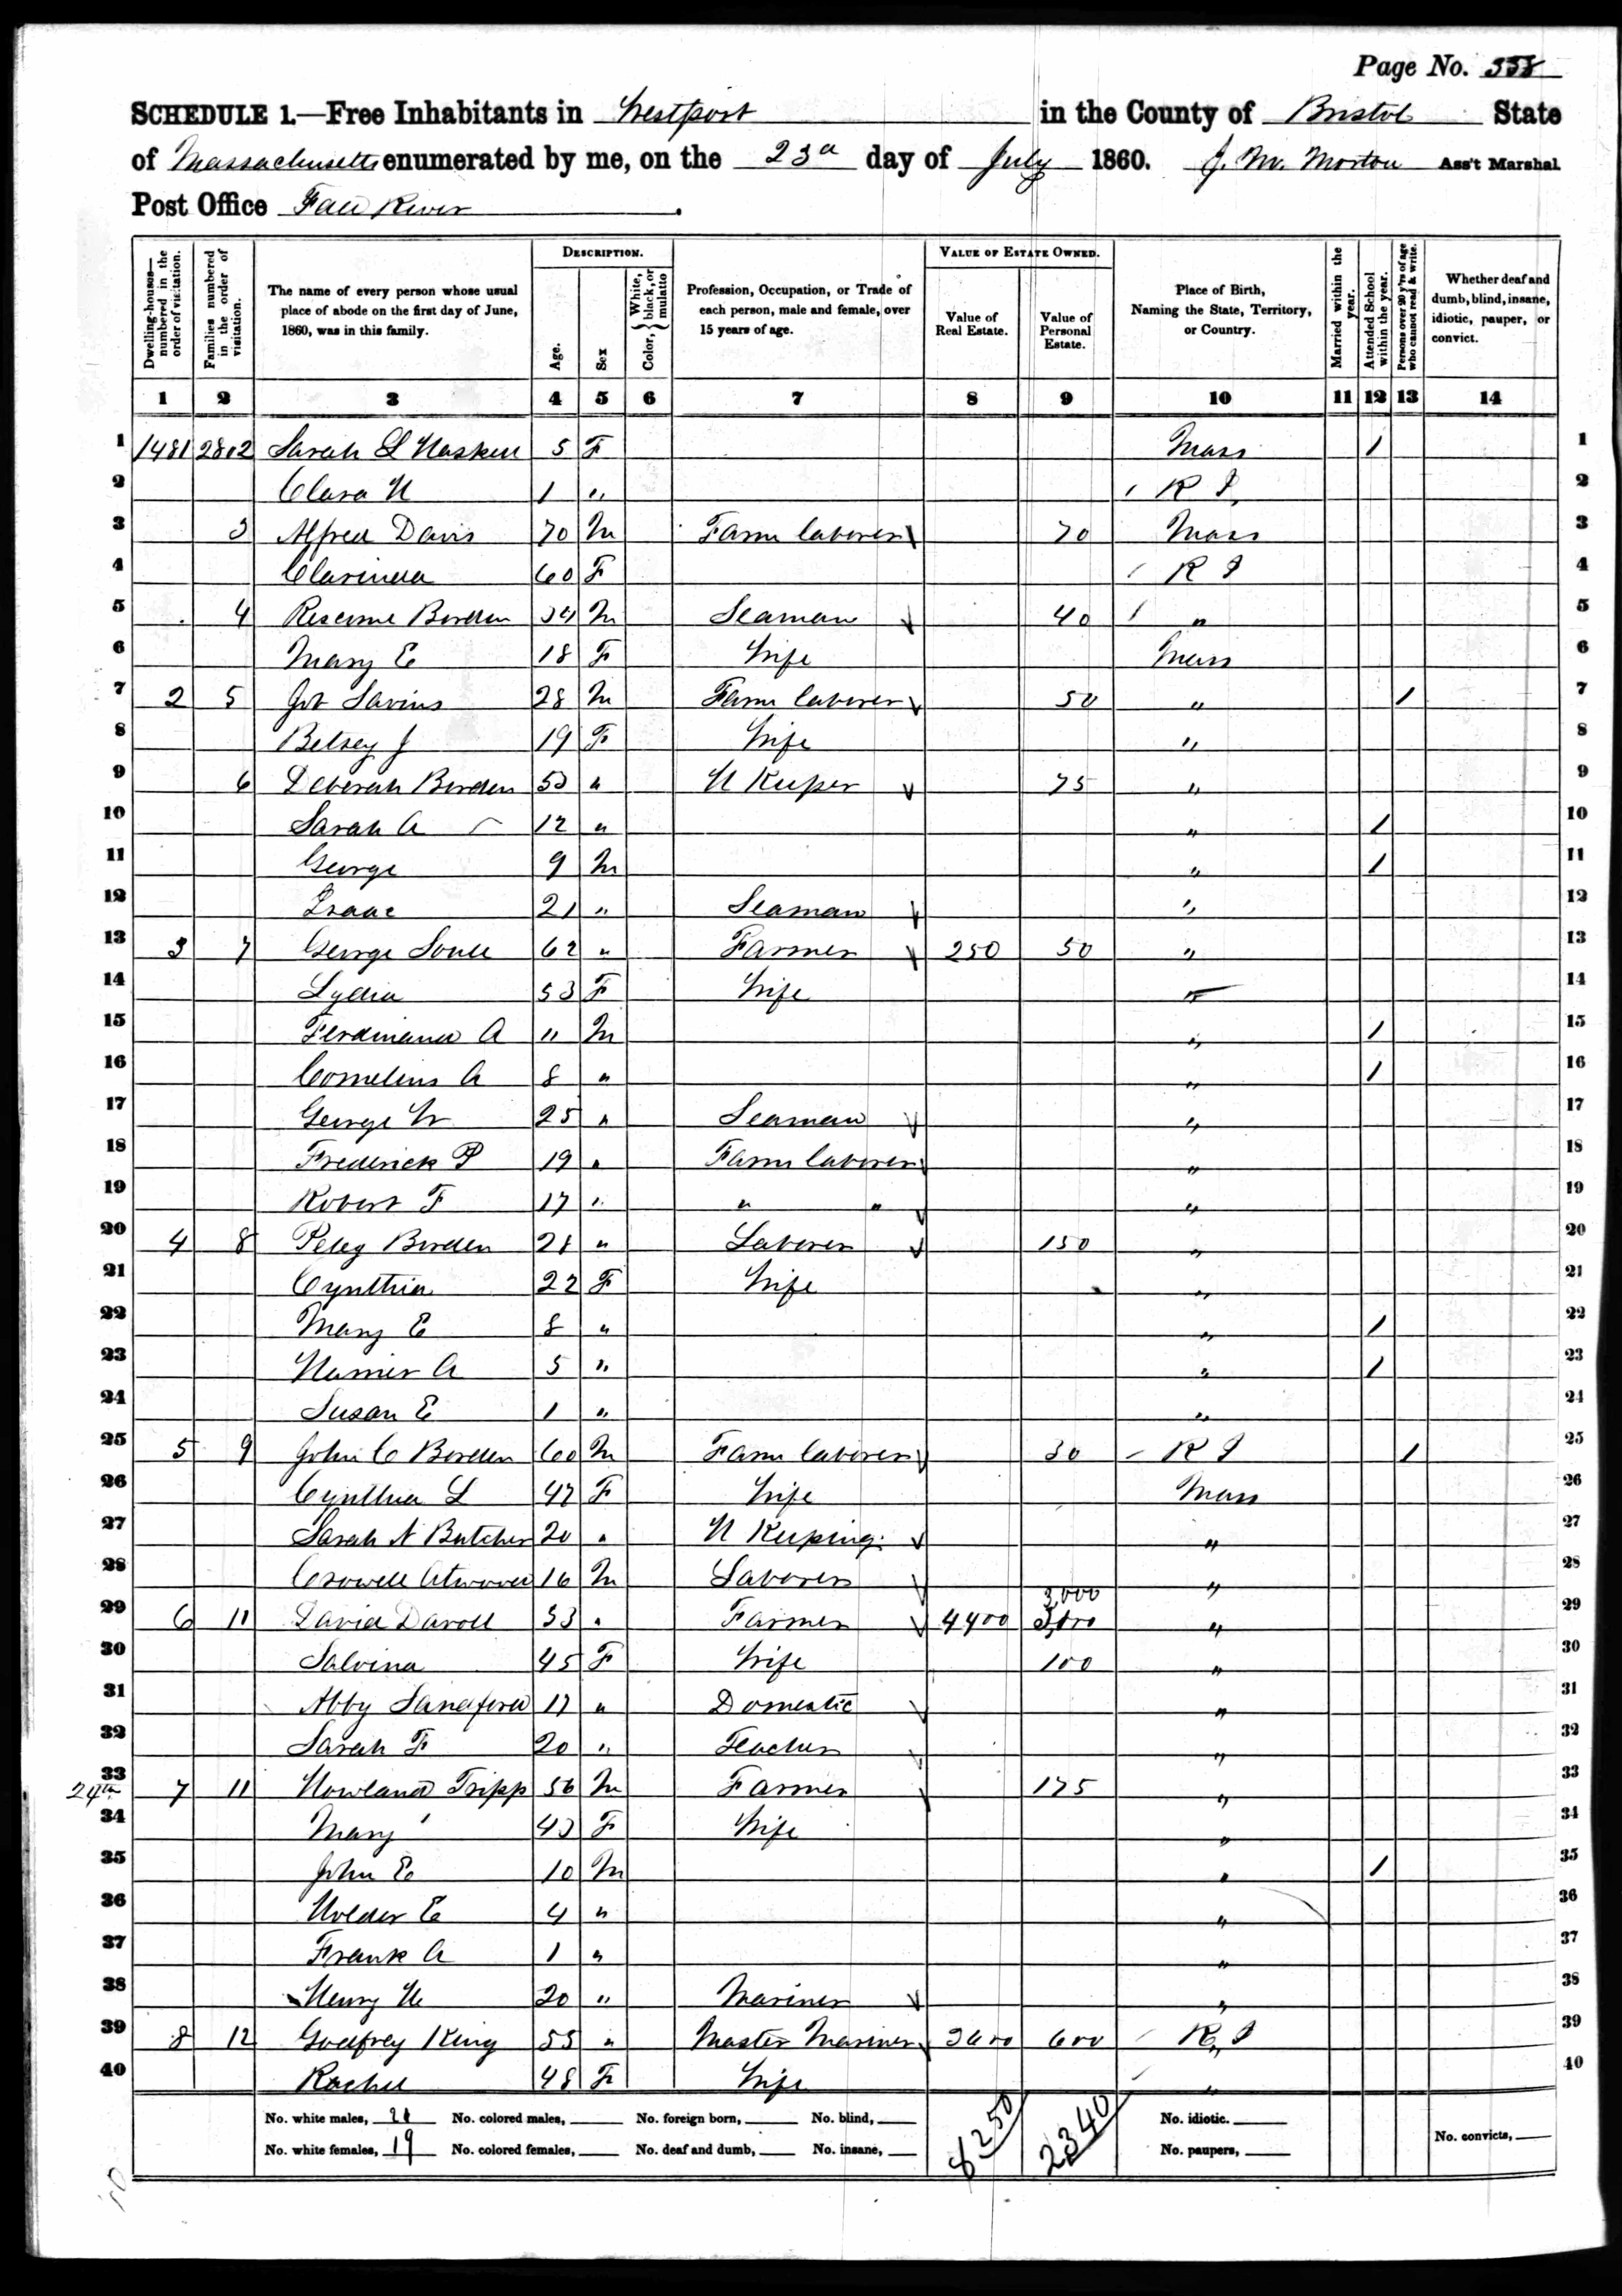 Page No. 358
SCHEDULE 1.—Free Inhabitants in Westport in the County of Bristol State
of Massachusetts enumerated by me, on the 23d day of July 1860. J. M. Morton Ass't Marshal
Post Office Fall River.
Dwelling-houses—numbered in the order of visitation. Families numbered in the order of visitation. The name of every person whose usual place of abode on the first day of June, 1860, was in this family. DESCRIPTION. Age. Sex Color, { White, black, or mulatto Profession, Occupation, or Trade of each person, male and female, over 15 years of age. VALUE OF ESTATE OWNED. Value of Real Estate. Value of Personal Estate. Place of Birth, Naming the State, Territory, or Country. Married within the year. Attended School within the year. Persons over 20 y'rs of age who cannot read & write. Whether deaf and dumb, blind, insane, idiotic, pauper, or convict.
1 2 3 4 5 6 7 8 9 10 11 12 13 14
1 1481 2802 Sarah L Haskell 5 F Mass 1 1
2 Clara H 1 " R I 2
3 3 Alfred Davis 70 M Farm laborer 70 Mass 3
4 Clarinda 60 F R I 4
5 4 Borden 34 M Seaman 40 " 5
6 Mary E 18 F Wife Mass 6
7 2 5 Job 28 M Farm laborer 50 " 1 7
8 Betsey J 19 F Wife " 8
9 6 Deborah Borden 53 " H Keeper 75 " 9
10 Sarah A 12 " " 1 10
11 George 9 M " 1 11
12 Isaac 21 " Seaman " 12
13 3 7 George Soule 62 " Farmer 250 50 " 13
14 Lydia 53 F Wife " 14
15 Ferdinand A 11 M " 1 15
16 Cornelius A 8 " " 1 16
17 George W 25 " Seaman " 17
18 Frederick P 19 " Farm laborer " 18
19 Robert F 17 " " " " 19
20 4 8 Peleg Borden 28 " Laborer 150 " 20
21 Cynthia 22 F Wife " 21
22 Mary E 8 " " 1 22
23 A 5 " " 1 23
24 Susan E 1 " " 24
25 5 9 John C Borden 60 M Farm laborer 30 R I 1 25
26 Cynthia L 47 F Wife Mass 26
27 Sarah N Butcher 20 " H Keeping " 27
28 Crowell Atwood 16 M Laborer " 28
3,000
29 6 11 David Davoll 53 " Farmer 4400 " 29
30 Salvina 45 F Wife 100 " 30
31 Abby Sandford 17 " Domestic " 31
32 Sarah F 20 " Teacher " 32
24th 33 7 11 Howland Tripp 56 M Farmer 175 " 33
34 Mary 43 F Wife " 34
35 John E 10 M " 1 35
36 Holder E 4 " " 36
37 Frank A 1 " " 37
38 Henry H 20 " Mariner " 38
39 8 12 Godfrey King 55 " Master Mariner 3600 600 R I 39
40 Rachel 48 F Wife " 40
No. white males, 21 No. colored males, No. foreign born, No. blind, 8250 2340 No. idiotic.
No. white females, 19 No. colored females, No. deaf and dumb, No. insane, No. paupers, No. convicts,